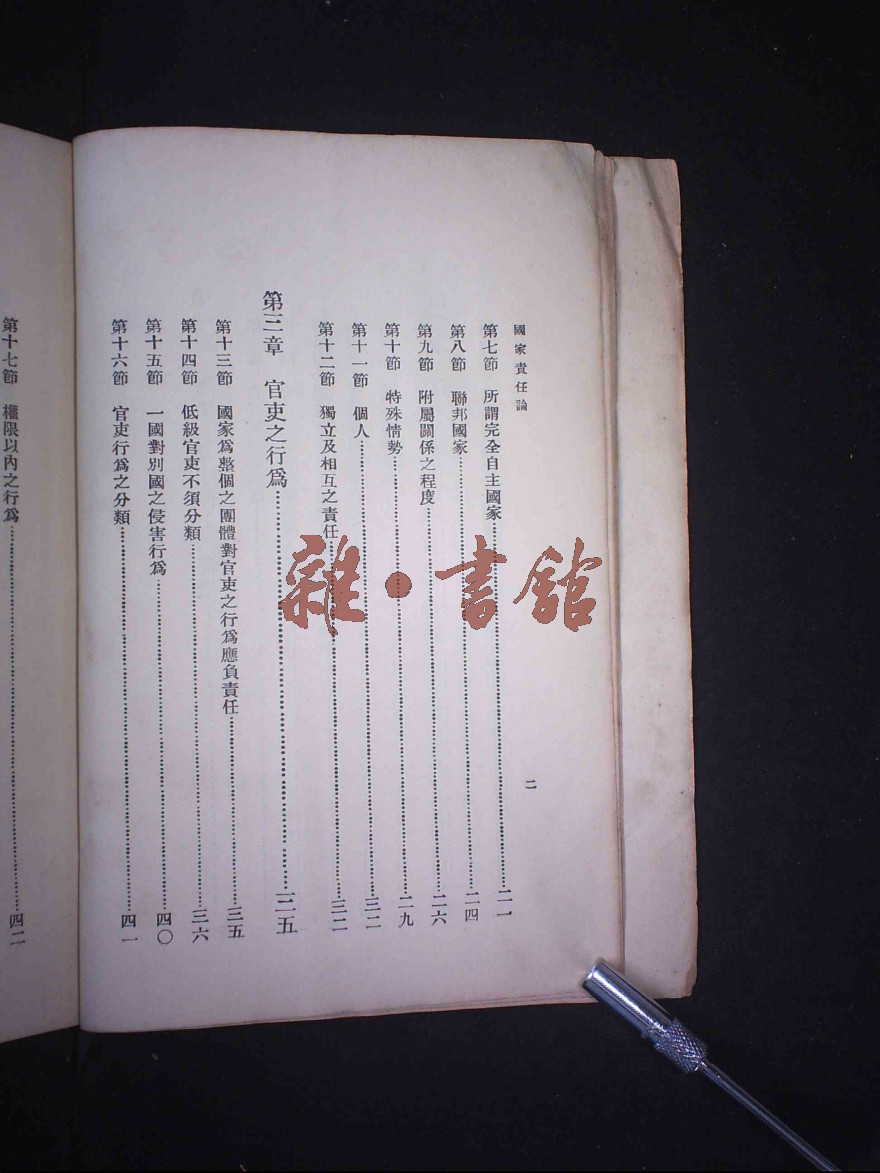 國家責任論
二
第七節 所謂完全自主國家…………二一
第八節 聯邦國家…………二四
第九節 附屬關係之程度…………二六
第十節 特殊情勢…………二九
第十一節 個人…………三二
第十二節 獨立及相互之責任…………三二
第三章 官吏之行爲…………三五
第十三節 國家爲整個之團體對官吏之行爲應負責任…………三五
第十四節 低級官吏不須分類…………三六
第十五節 一國對別國之侵害行爲…………四〇
第十六節 官吏行爲之分類…………四一
第十七節 權限以內之行爲…………四二
雜·書館